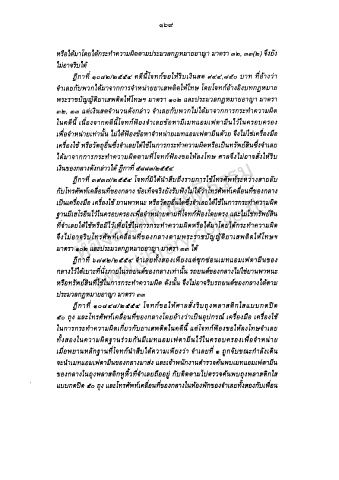 ๑๖๙
หรือได้มาโดยได้กระทำความผิดตามประมวลกฎหมายอาญา มาตรา ๓๒, ๓๓(๒) จึงยัง
ไม่อาจริบได้
ฎีกาที่ ๑๐๘๒/๒๕๕๔ คดีนี้โจทก์ขอให้ริบเงินสด ๙๙๙,๘๕๐ บาท ที่อ้างว่า
จำเลยกับพวกได้มาจากการจำหน่ายยาเสพติดให้โทษ โดยโจทก์อ้างอิงบทกฎหมาย
พระราชบัญญัติยาเสพติดให้โทษฯ มาตรา ๑๐๒ และประมวลกฎหมายอาญา มาตรา
๓๒, ๓๓ แต่เงินสดจำนวนดังกล่าว จำเลยกับพวกไม่ได้มาจากการกระทำความผิด
ในคดีนี้ เนื่องจากคดีนี้โจทก์ฟ้องจำเลยข้อหามีเมทแอมเฟตามีนไว้ในครอบครอง
เพื่อจำหน่ายเท่านั้น ไม่ได้ฟ้องข้อหาจำหน่ายเมทแอมเฟตามีนด้วย จึงไม่ใช่เครื่องมือ
เครื่องใช้ หรือวัตถุอื่นซึ่งจำเลยได้ใช้ในการกระทำความผิดหรือเป็นทรัพย์สินซึ่งจำเลย
ได้มาจากการกระทำความผิดตามที่โจทก์ฟ้องขอให้ลงโทษ ศาลจึงไม่อาจสั่งให้ริบ
เงินของกลางดังกล่าวได้
กับโทรศัพท์เคลื่อนที่ของกลาง ข้อเท็จจริงยังรับฟังไม่ได้ว่าโทรศัพท์เคลื่อนที่ของกลาง
เป็นเครื่องมือ เครื่องใช้ ยานพาหนะ หรือวัตถุอื่นใดซึ่งจำเลยได้ใช้ในการกระทำความผิด
ฐานมีเฮโรอีนไว้ในครอบครองเพื่อจำหน่ายตามที่โจทก์ฟ้องโดยตรง และไม่ใช่ทรัพย์สิน
ที่จำเลยได้ใช้หรือมีไว้เพื่อใช้ในการกระทำความผิดหรือได้มาโดยได้กระทำความผิด
จึงไม่อาจริบโทรศัพท์เคลื่อนที่ของกลางตามพระราชบัญญัติยาเสพติดให้โทษฯ
มาตรา ๑๐๒ และประมวลกฎหมายอาญา มาตรา ๓๓ ได้
จำเลยทั้งสองเพียงแต่ซุกซ่อนเมทแอมเฟตามีนของ
กลางไว้ใต้เบาะที่นั่งภายในรถยนต์ของกลางเท่านั้น รถยนต์ของกลางไม่ใช่ยานพาหนะ
หรือทรัพย์สินที่ใช้ในการกระทำความผิด ดังนั้น จึงไม่อาจริบรถยนต์ของกลางได้ตาม
ประมวลกฎหมายอาญา มาตรา ๓๓
โจทก์ขอให้ศาลสั่งริบถุงพลาสติกใสแบบกดปิด
๕๐ ถุง และโทรศัพท์เคลื่อนที่ของกลางโดยอ้างว่าเป็นอุปกรณ์ เครื่องมือ เครื่องใช้
ในการกระทำความผิดเกี่ยวกับยาเสพติดในคดีนี้ แต่โจทก์ฟ้องขอให้ลงโทษจำเลย
ทั้งสองในความผิดฐานร่วมกันมีเมทแอมเฟตามีนไว้ในครอบครองเพื่อจำหน่าย
เมื่อพยานหลักฐานที่โจทก์นำสืบได้ความเพียงว่า จำเลยที่ ๑ ถูกจับขณะกำลังเดิน
จะนำเมทแอมเฟตามีนของกลางมาส่ง และเจ้าพนักงานตำรวจค้นพบเมทแอมเฟตามีน
ของกลางในถุงพลาสติกหูหิ้วที่จำเลยถืออยู่ กับติดตามไปตรวจค้นพบถุงพลาสติกใส
แบบกดปิด ๕๐ ถุง และโทรศัพท์เคลื่อนที่ของกลางในห้องพักของจำเลยทั้งสองกับเพื่อน